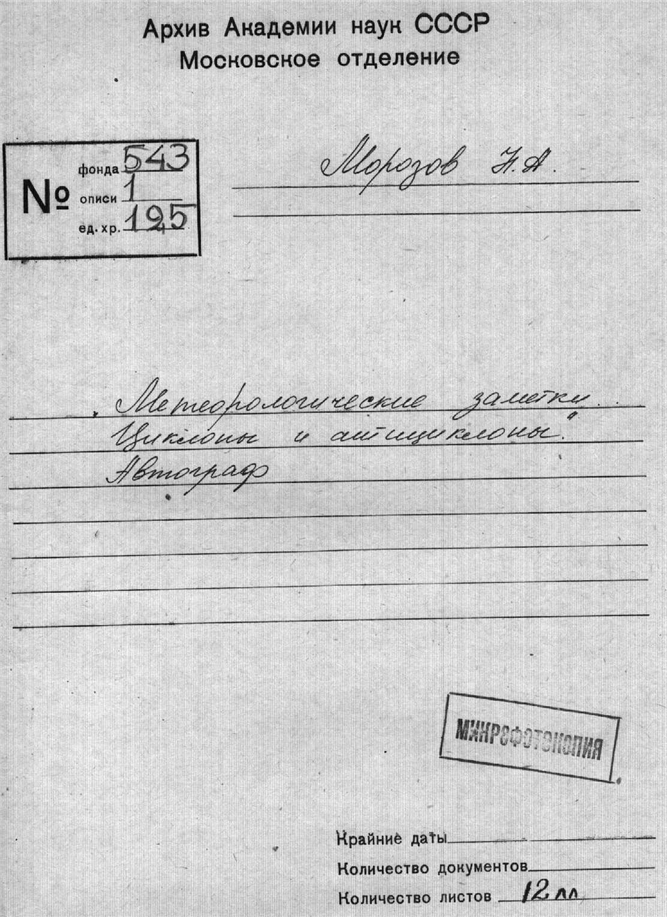 Архив Академии наук СССР
Московское отделение
№
фонда 543
описи 1
ед. хр. 195
Морозов Н.А.
„Метеорологические заметки.
Циклоны и антициклоны."
Автограф
МИКРОФОТОКОПИЯ
Крайние даты
Количество документов
Количество листов 12 лл